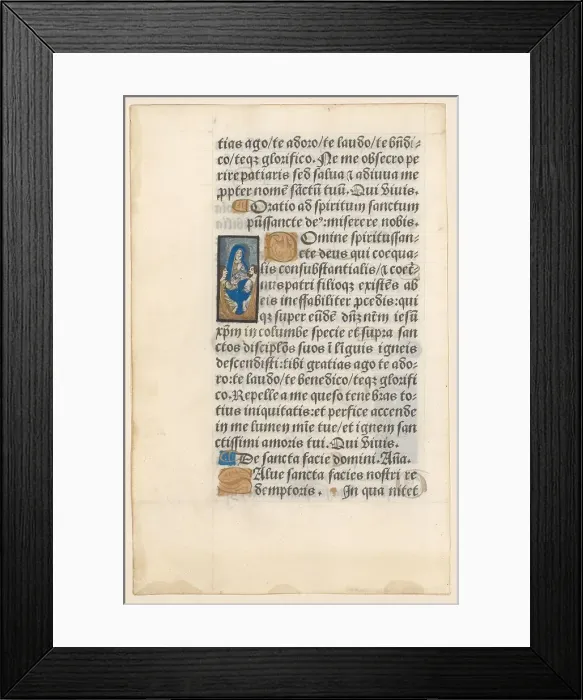 tias ago/te adoro/te laudo/te bn̄di-
co/teqȝ glorifico. Ne me obsecro pe
rire patiaris sed salua ⁊ adiuua me
ꝓpter nomē sāctū tuū. Qui viuis.
Oratio ad spiritum sanctum
pūssancte deꝰ: miserere nobis.
Omine spiritussan-
cte deus qui coequa-
lis consubstantialis/⁊ coet̄-
nus patri filioqȝ existēs ab
eis ineffabiliter ꝓcedis: qui
qȝ super eūdē dn̄ȝ nēm iesū
xp̄m in columbe specie et supra san
ctos disciplōs suos ī līguis igneis
descendisti: tibi gratias ago te ado-
ro: te laudo/te benedico/teqȝ glorifi
co. Repelle a me queso tenebras to-
tius iniquitatis: et perfice accende
in me lumen mīe tue/et ignem san
ctissimi amoris tui. Qui viuis.
De sancta facie domini. Aña.
Alue sancta facies nostri re
demptoris. In qua nitet